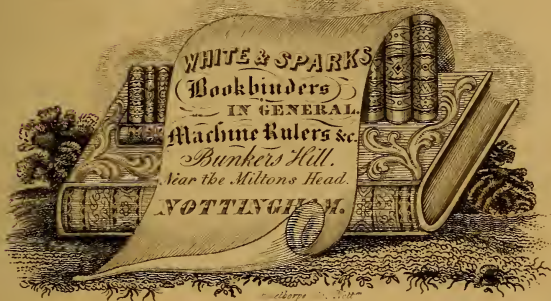 WHITE & SPARKS
Bookbinders
IN GENERAL.
Machine Rulers &c.
Bunkers Hill.
Near the Miltons Head.
NOTTINGHAM.